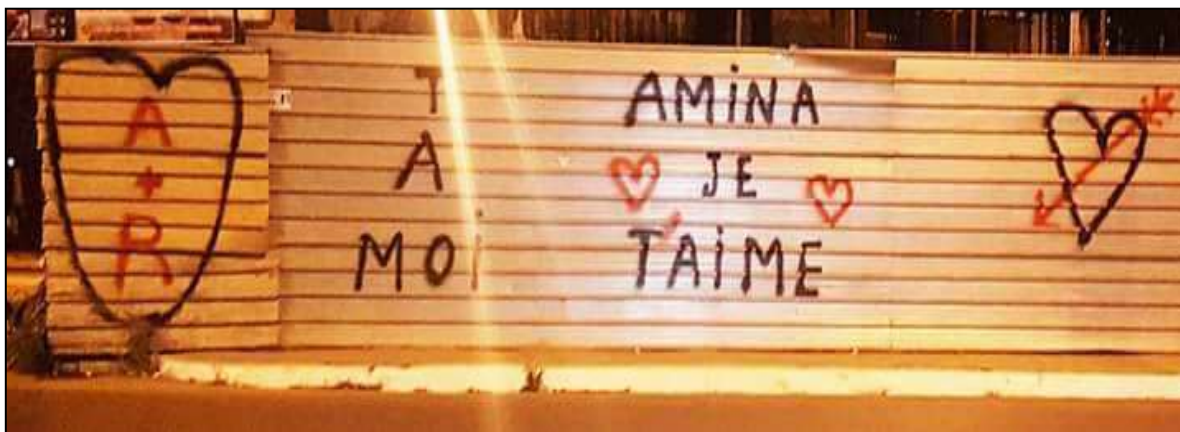 A
+
R
T
A
MOi
AMiNA
JE
T'AiME